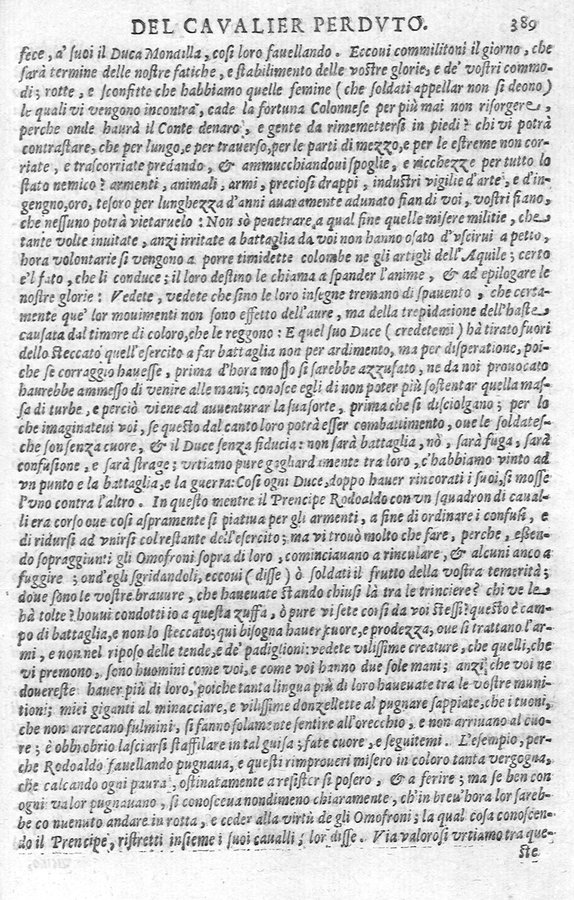 DEL CAVALIER PERDVTO. 389
fece, a' suoi il Duca Mondilla, così loro favellando. Eccovi commilitoni il giorno, che
sarà termine delle nostre fatiche, e stabilimento delle vostre glorie, e de' vostri commo-
di; rotte, e sconfitte che habbiamo quelle femine (che soldati appellar non si deono)
le quali vi vengono incontra, cade la fortuna Colonnese per più mai non risorgere,
perche onde haurà il Conte denaro, e gente da rimemettersi in piedi? chi vi potrà
contrastare, che per lungo, e per traverso, per le parti di mezzo, e per le estreme non cor-
riate, e trascorriate predando, & ammucchiandovi spoglie, e ricchezze per tutto lo
stato nemico? armenti, animali, armi, preciosi drappi, industri vigilie d'arte, e d'in-
gengno, oro, tesoro per lunghezza d'anni avaramente adunato fian di voi, vostri fiano,
che nessuno potrà vietaruelo: Non sò penetrare, a qual fine quelle misere militie, che
tante volte invitate, anzi irritate a battaglia da voi non hanno osato d'vscirui a petto,
hora volontarie si vengono a porre timidette colombe ne gli artigli dell'Aquile; certo
e'l fato, che li conduce; il loro destino le chiama a spander l'anime, & ad epilogare le
nostre glorie: Vedete, vedete che sino le loro insegne tremano di spavento, che certa-
mente que' lor movimenti non sono effetto dell'aure, ma della trepidatione dell'haste
causata dal timore di coloro, che le reggono: E quel suo Duce (credetemi) hà tirato fuori
dello steccato quell'esercito a far battaglia non per ardimento, ma per disperatione, poi-
che se corraggio havesse, prima d'hora mosso si sarebbe azzufato, ne da noi provocato
haurebbe ammesso di venire alle mani; conosce egli di non poter più sostentar quella mas-
sa di turbe, e perciò viene ad avventurar la sua sorte, prima che si disciolgano; per lo
che imaginatevi voi, se questo dal canto loro potrà esser combattimento, ove le soldates-
che son senza cuore, & il Duce senza fiducia: non sarà battaglia, nò, sarà fuga, sarà
confusione, e sarà strage; vrtiamo pure gagliardamente tra loro, c'habbiamo vinto ad
vn punto e la battaglia, e la guerra: Così ogni Duce, doppo haver rincorati i suoi, si mosse
l'vno contra l'altro. In questo mentre il Prencipe Rodoaldo con vn squadron di caval-
li era corso ove così aspramente si piativa per gli armenti, a fine di ordinare i confusi, e
di ridursi ad vnirsi col restante dell'esercito; ma vi trovò molto che fare, perche, essen-
do sopraggiunti gli Omofroni sopra di loro, cominciavano a rinculare, & alcuni anco a
fuggire; ond'egli sgridandoli, eccovi (disse) ò soldati il frutto della vostra temerità;
dove sono le vostre bravure, che havevate stando chiusi là tra le trinciere? chi ve le
hà tolte? houui condotti io a questa zuffa, ò pure vi sete corsi da voi stessi? questo è cam-
po di battaglia, e non lo steccato; qui bisogna haver cuore, e prodezza, ove si trattano l'ar-
mi, e non nel riposo delle tende, e de' padiglioni: vedete vilissime creature, che quelli, che
vi premono, sono huomini come voi, e come voi hanno due sole mani; anzi che voi ne
dovereste haver più di loro, poiche tanta lingua più di loro havevate tra le vostre muni-
tioni; miei giganti al minacciare, e vilissime donzellette al pugnare sappiate, che i tuoni,
che non arrecano fulmini, si fanno solamente sentire all'orecchio, e non arrivano al cuo-
re; è obbrobrio lasciarsi staffilare in tal guisa; fate cuore, e seguitemi. L'esempio, per-
che Rodoaldo favellando pugnava, e questi rimproveri misero in coloro tanta vergogna,
che calcando ogni paura, ostinatamente a resister si posero, & a ferire; ma se ben con
ogni valor pugnavano, si conosceva nondimeno chiaramente, ch'in breu'hora lor sareb-
be convenuto andare in rotta, e ceder alla virtù de gli Omofroni; la qual cosa conoscen-
do il Prencipe, ristretti insieme i suoi cavalli, lor disse. Via valorosi vrtiamo tra que-
ste